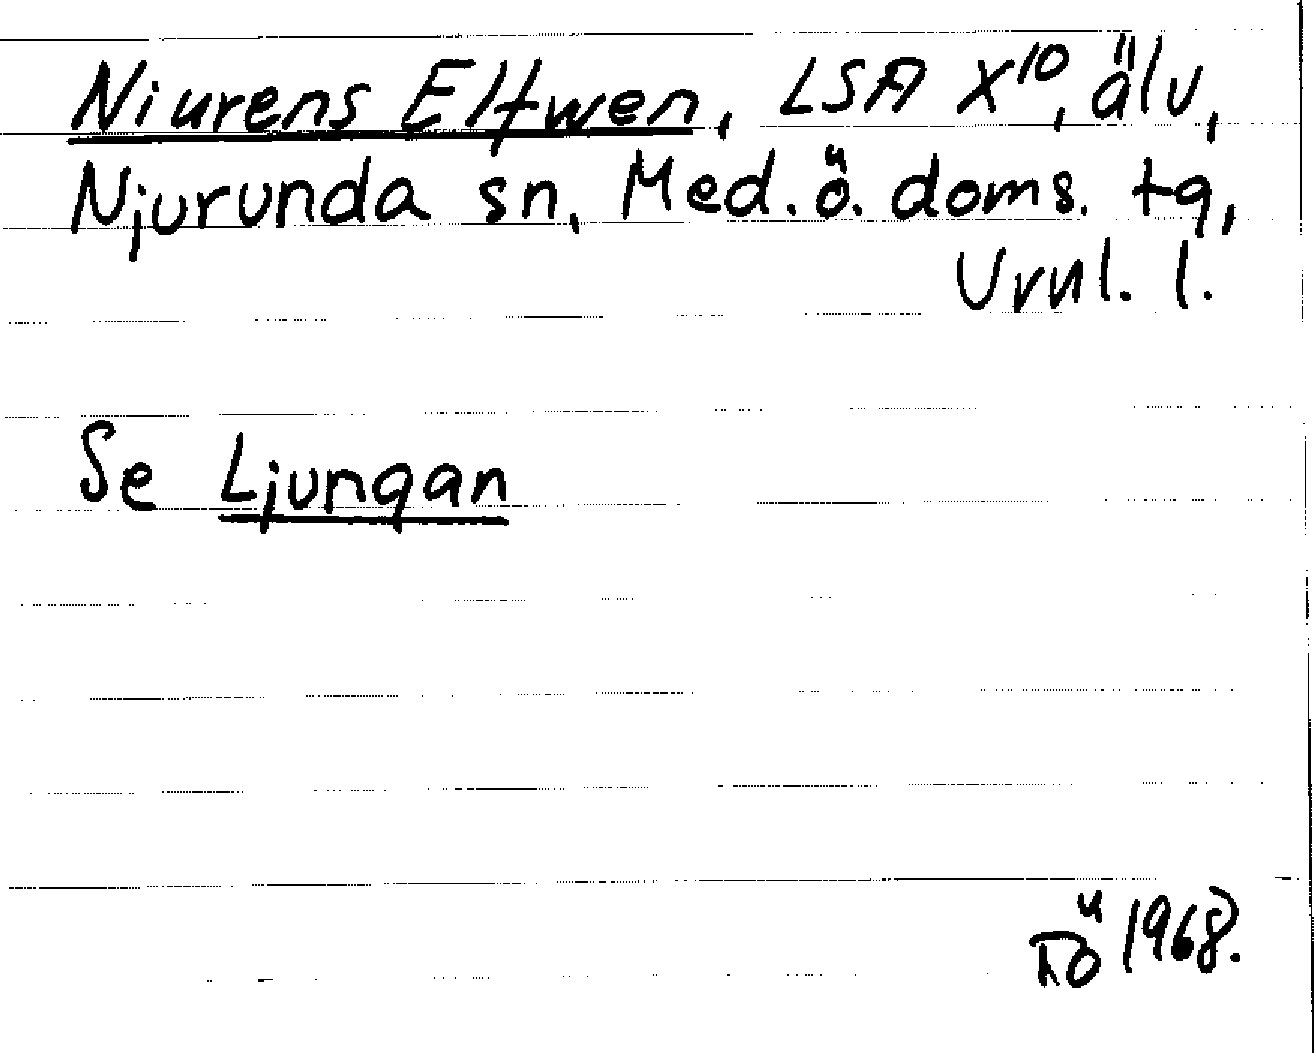 Niurens Elfwen, LSA X¹⁰, älv,
Njurunda sn, Med. ö. doms. tg,
Vrnl. l.
Se Ljungan
1968.